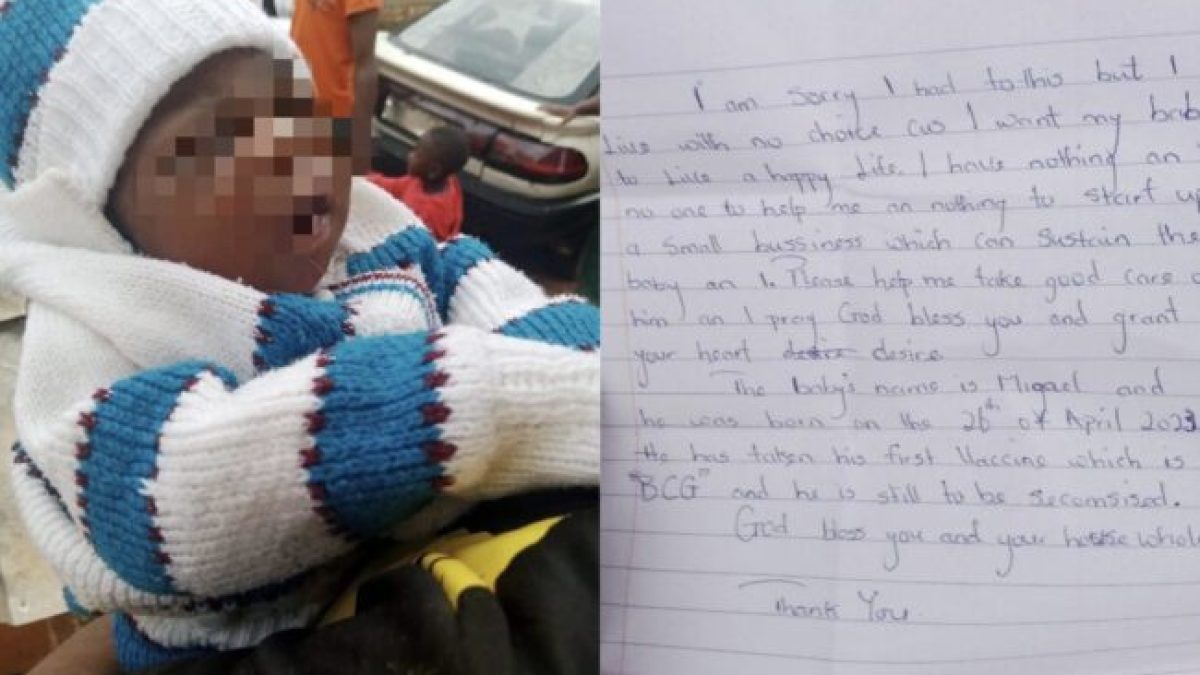 I am sorry I had to this but I
Live with no choice cus I want my bab
to Live a happy Life. I have nothing an
no one to help me an nothing to start up
a small bussiness which can sustain the
baby an I. Please help me take good care
him an I pray God bless you and grant
your heart desire desire
The baby's name is Migael and
he was born on the 26th of April 2023
He has taken his first Vaccine which is
"BCG" and he is still to be secomsised.
God bless you and your house whole
Thank You